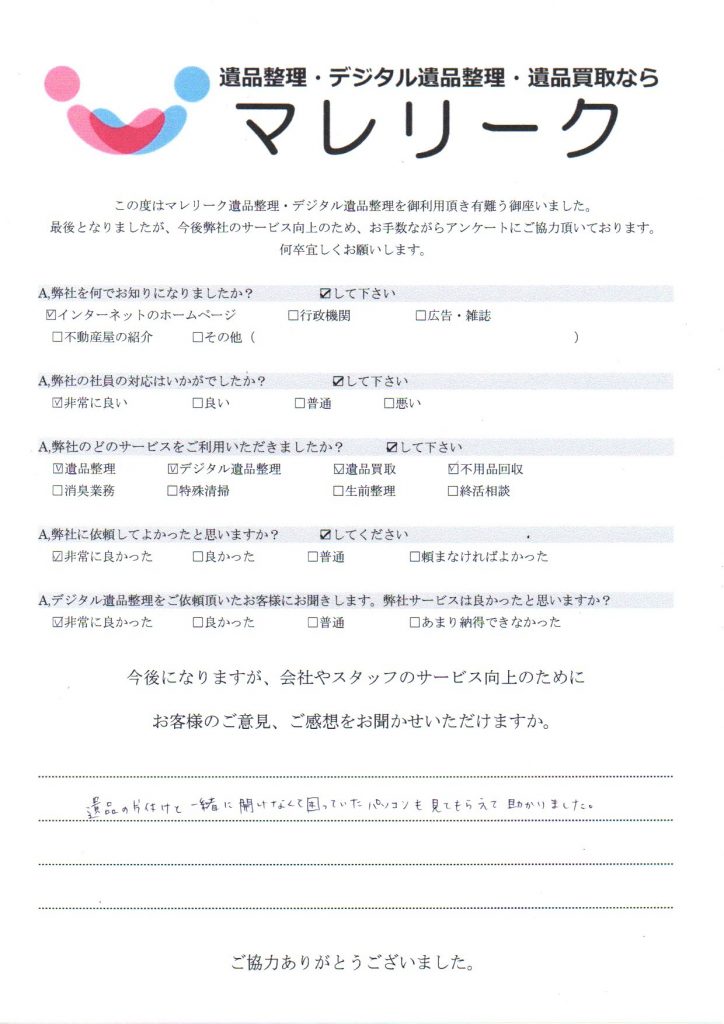 遺品整理・デジタル遺品整理・遺品買取なら
マレリーク
この度はマレリーク遺品整理・デジタル遺品整理を御利用頂き有難う御座いました。
最後となりましたが、今後弊社のサービス向上のため、お手数ながらアンケートにご協力頂いております。
何卒宜しくお願いします。
A,弊社を何でお知りになりましたか？ ☑して下さい
☑インターネットのホームページ □行政機関 □広告・雑誌
□不動産屋の紹介 □その他（ ）
A,弊社の社員の対応はいかがでしたか？ ☑して下さい
☑非常に良い □良い □普通 □悪い
A,弊社のどのサービスをご利用いただきましたか？ ☑して下さい
☑遺品整理 ☑デジタル遺品整理 ☑遺品買取 ☑不用品回収
□消臭業務 □特殊清掃 □生前整理 □終活相談
A,弊社に依頼してよかったと思いますか？ ☑してください
☑非常に良かった □良かった □普通 □頼まなければよかった
A,デジタル遺品整理をご依頼頂いたお客様にお聞きします。弊社サービスは良かったと思いますか？
☑非常に良かった □良かった □普通 □あまり納得できなかった
今後になりますが、会社やスタッフのサービス向上のために
お客様のご意見、ご感想をお聞かせいただけますか。
遺品の片付けと一緒に開けなくて困っていたパソコンも見てもらえて助かりました。
ご協力ありがとうございました。